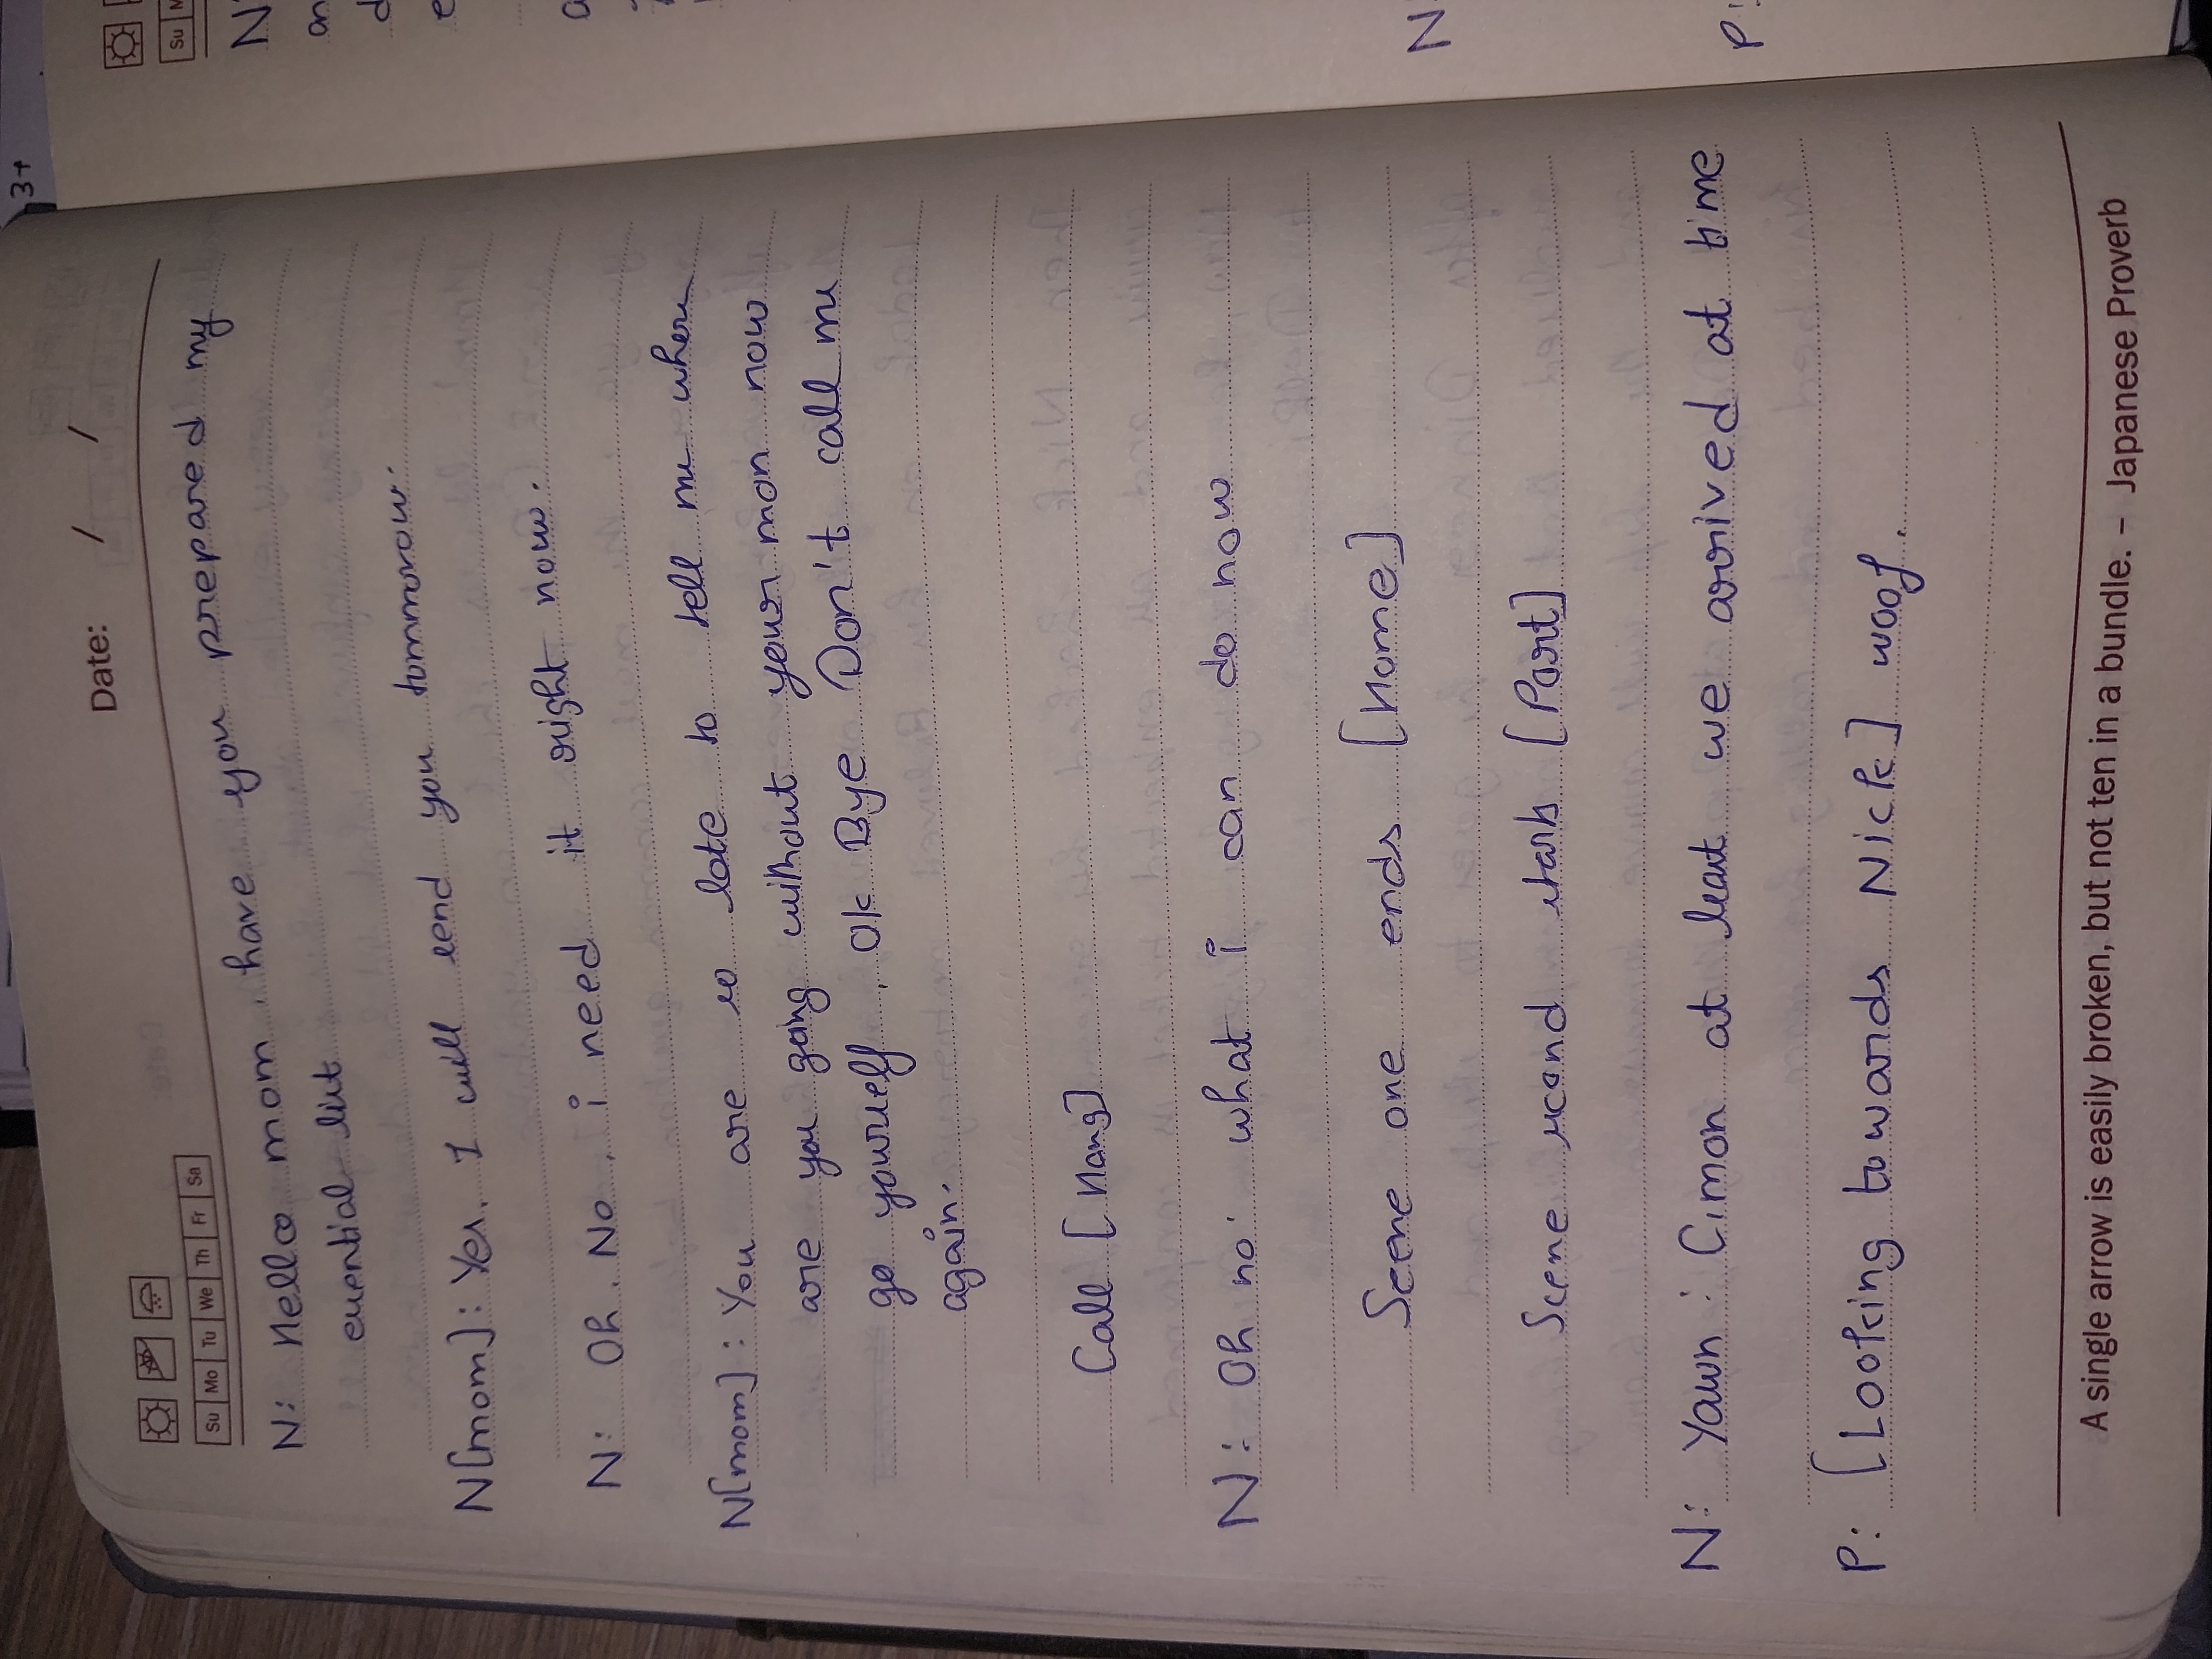 3+
Date: / /
Su Mo Tu We Th Fr Sa
N: Hello mom, have you prepared my
essential list
N[mom]: Yes, I will send you tommorow.
N: Oh. No, i need it right now.
N[mom]: You are so late to tell me where
are you going without your mon now
go yourself, Ok Bye Don't call me
again.
Call [Hang]
N: Oh no. what i can do now
Scene one ends [Home]
Scene second starts [Port]
N: Yawn: C,mon at least we arrived at time
P: [Looking towards Nick] woof.
A single arrow is easily broken, but not ten in a bundle. – Japanese Proverb
Su
N
an
d
e
a
N
P: